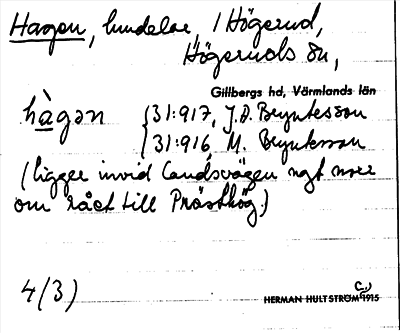 Hagen, lundelar, i Högerud,
Högeruds sn,
Gillbergs hd, Värmlands län
hàgən {31:917, J. A. Bryntesson
{31:916, M. Bryntesson
(ligger invid landsvägen ngt norr
om råct till Prästhög.)
4/3) C.)
HERMAN HULTSTRÖM 1915